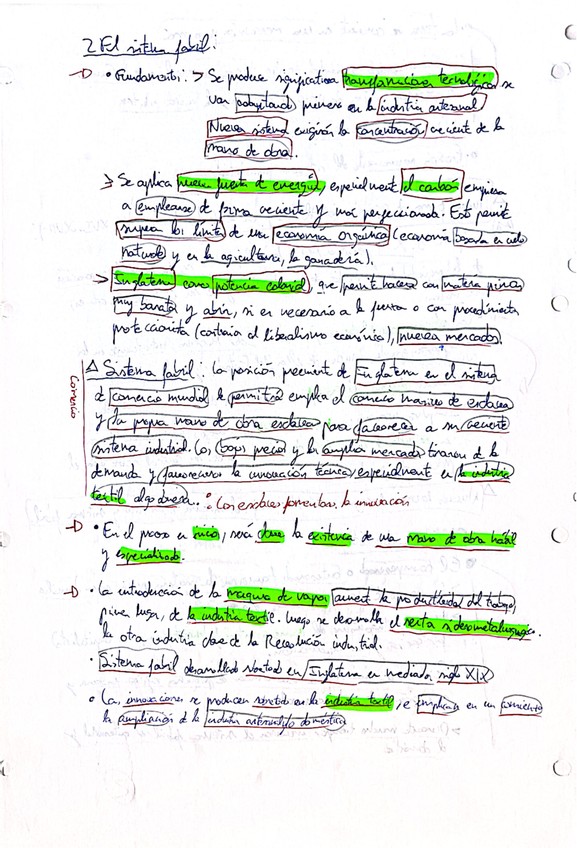 2 El sistema fabril:
• Fundamentos: > Se produce significativa transformaciones tecnológicas se
van adaptando primero en la industria artesanal
Nuevo sistema exigirán la concentración creciente de la
mano de obra.
> Se aplica nueva fuente de energía, especialmente el carbón empieza
a emplearse de forma creciente y más perfeccionada. Esto permite
supera los límites de una economía orgánica (economía basada en ciclo
naturales y en la agricultura, la ganadería).
> Inglaterra como potencia colonial, que permite hacerse con materia prima
muy barata y abrir, si es necesario a la fuerza o con procedimientos
proteccionista (contrario al liberalismo económico), nuevos mercados.
△ Sistema fabril: La posición preeminente de Inglaterra en el sistema
de comercio mundial le permitirá emplear el comercio masivo de esclavos
y la propia mano de obra esclava para favorecer a su creciente
sistema industrial. Los bajos precios y los amplios mercados tiraron de la
demanda y favorecieron la innovación técnica, especialmente en la industria
textil algodonera. : Los esclavos fomentan la innovación
Comercio
• En el proceso en inicio, será clave la existencia de una mano de obra hábil
y especializada.
• La introducción de la máquina de vapor aumentó la productividad del trabajo,
primer lugar, de la industria textil. Luego se desarrolla el sector siderometalúrgico.
la otra industria clave de la Revolución industrial.
• Sistema fabril desarrollado sobretodo en Inglaterra en mediados siglo XIX
• Las innovaciones se producen sobretodo en la industria textil, e en un comienzo
la ampliación de la industria artesanal doméstica